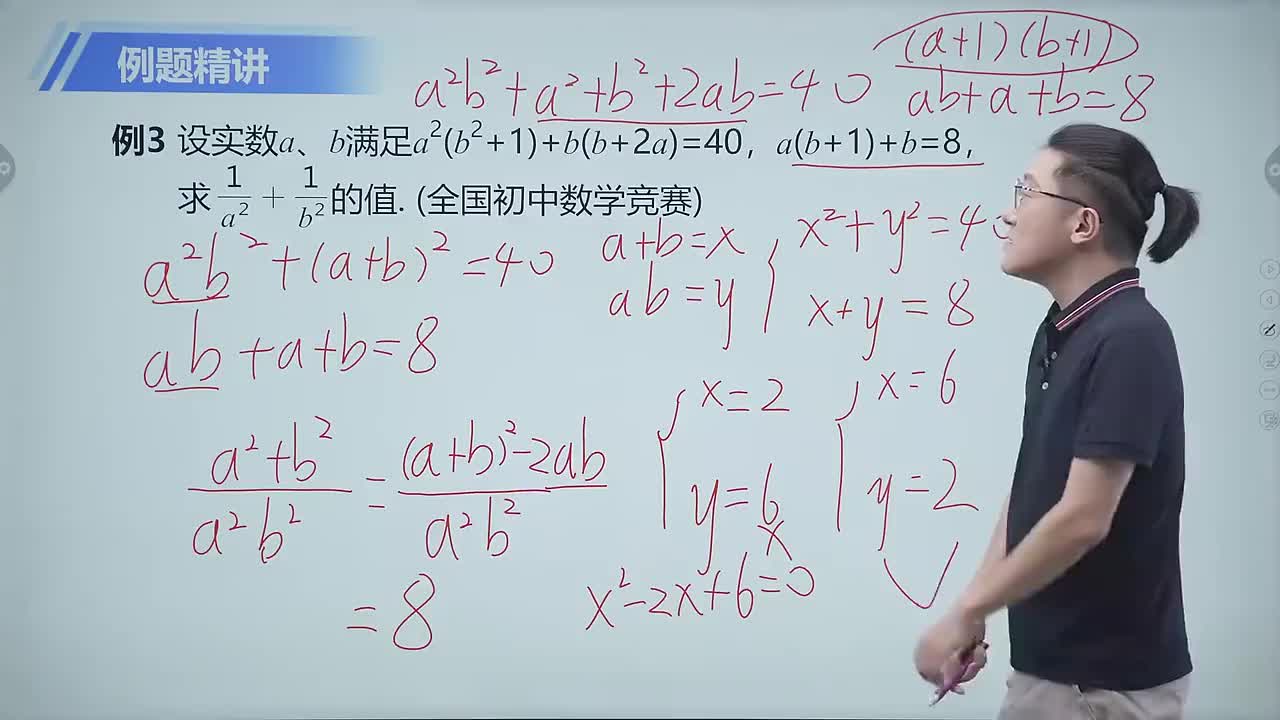 例题精讲
(a+1)(b+1)
a²b²+a²+b²+2ab=40
ab+a+b=8
例3 设实数a、b满足a²(b²+1)+b(b+2a)=40，a(b+1)+b=8，
求 1/a² + 1/b² 的值. (全国初中数学竞赛)
a²b²+(a+b)²=40
ab+a+b=8
a+b=x
ab=y
x²+y²=40
x+y=8
x=2
y=6
x=6
y=2
(a²+b²)/(a²b²) = ((a+b)²-2ab)/(a²b²)
=8
x
x²-2x+6=0